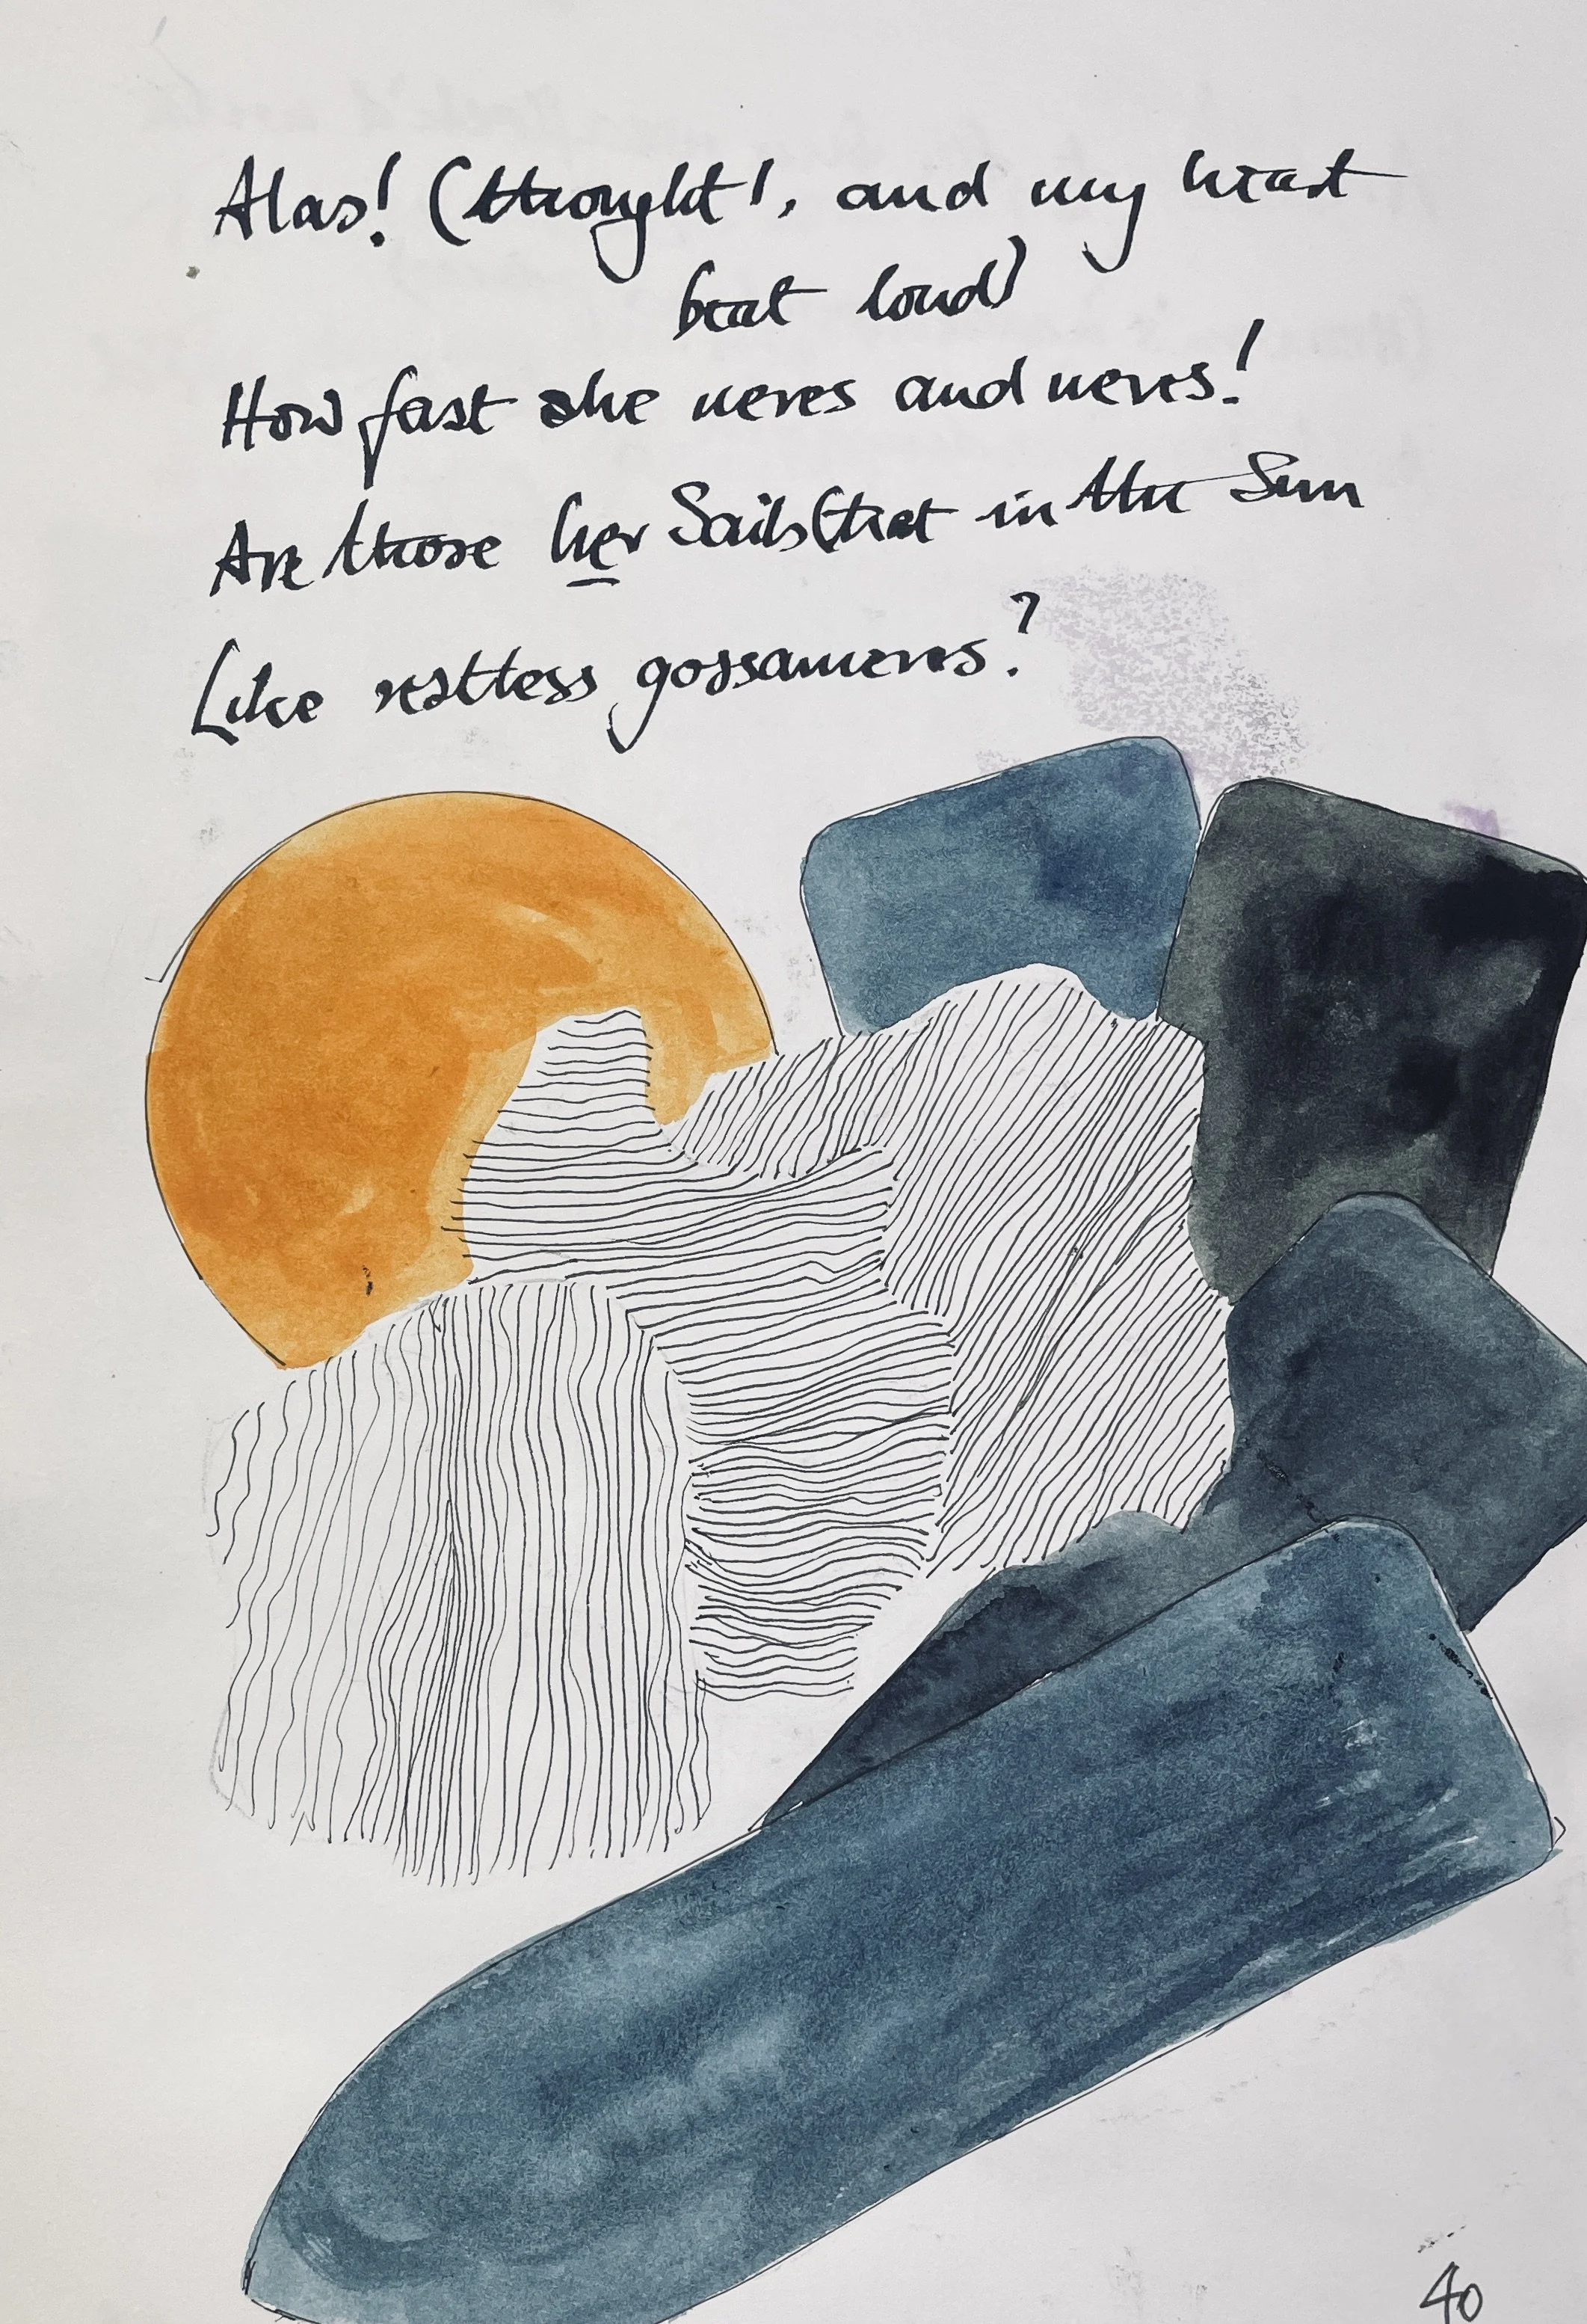 Alas! (thought I, and my heart
beat loud)
How fast she neres and neres!
Are those her Sails that in the Sun
Like restless gossameres?
40